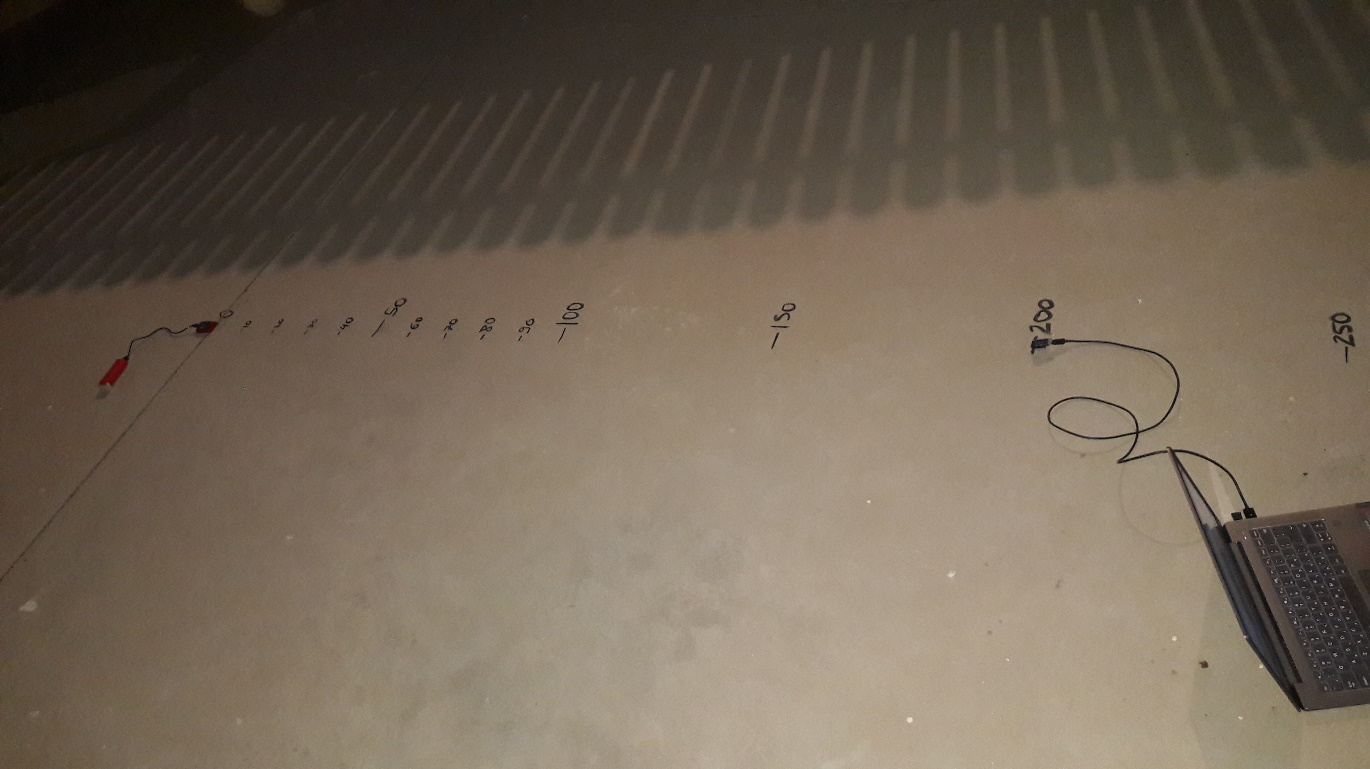 0
-10
-20
-30
-40
-50
-60
-70
-80
-90
-100
-150
-200
-250